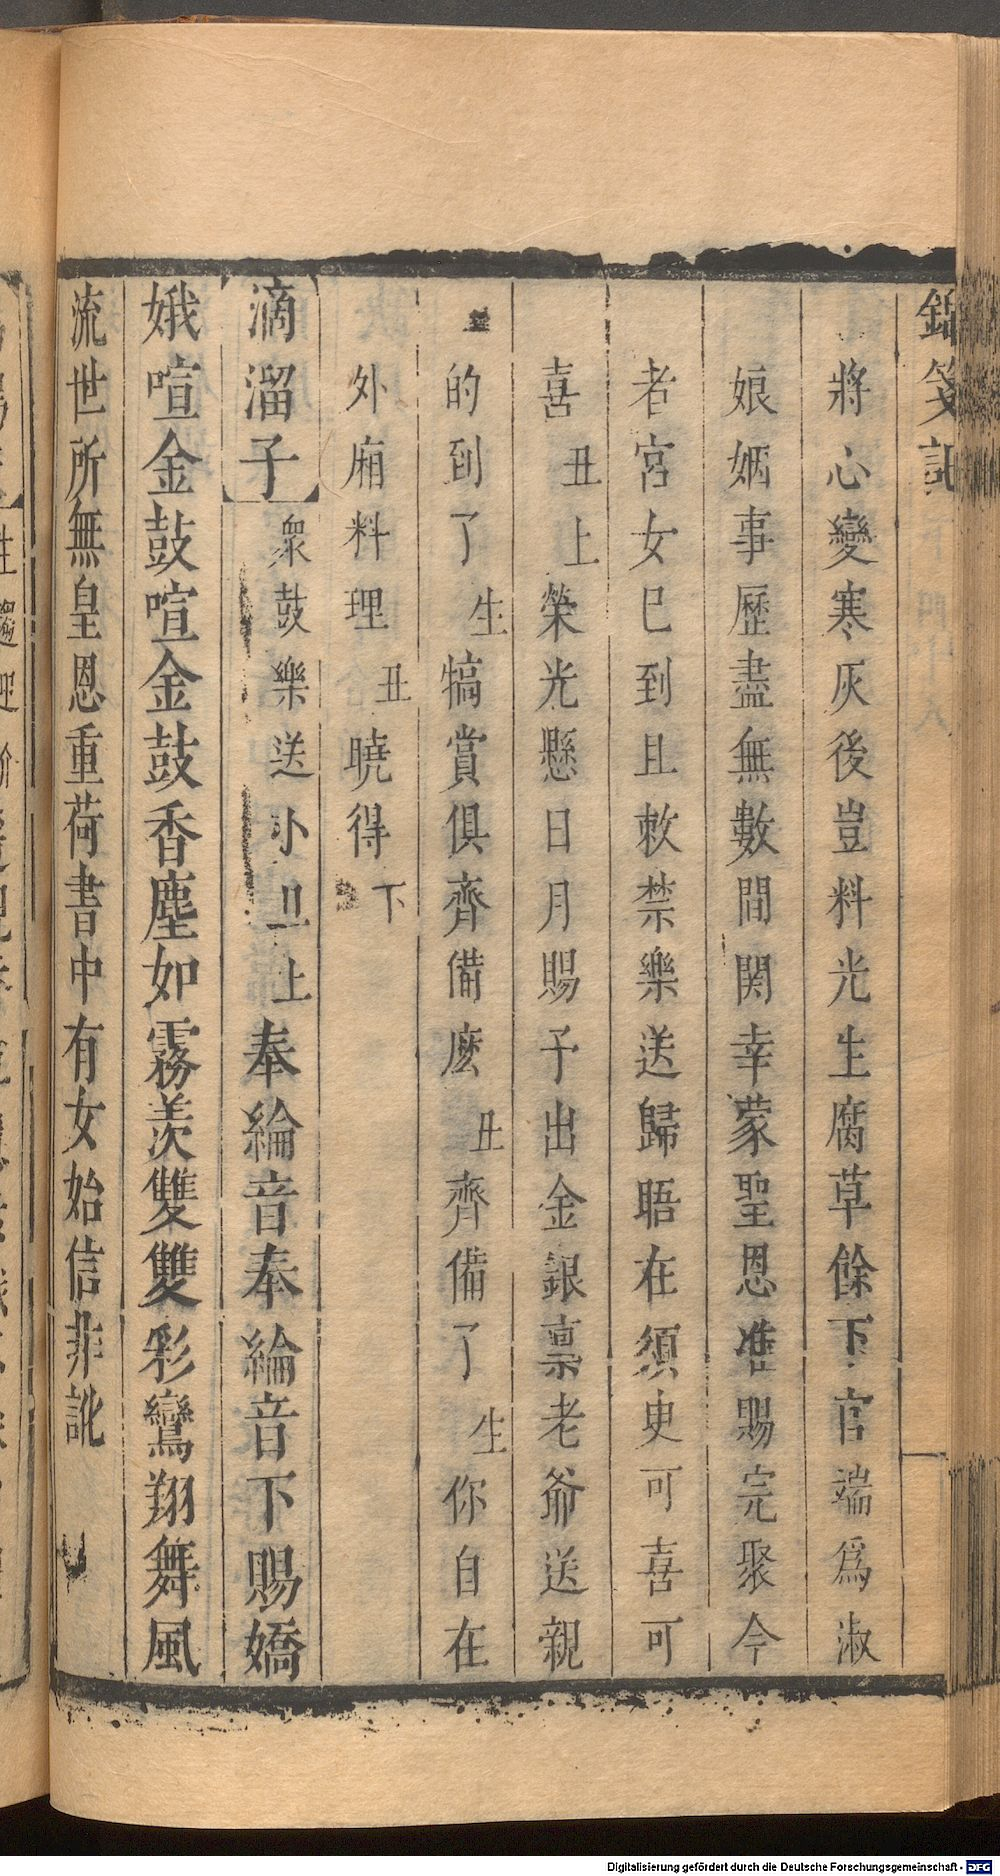 錦箋記
將心變寒灰後豈料光生腐草餘下官端爲淑
娘姻事歷盡無數間関幸蒙聖恩准賜完聚今
者宮女巳到且敕禁樂送歸晤在須臾可喜可
喜丑上榮光懸日月賜予出金銀禀老爺送親
的到了生犒賞俱齊備麽丑齊備了生你自在
外廂料理丑曉得下
【滴溜子】衆鼓樂送小旦上奉綸音奉綸音下賜嬌
娥喧金鼓喧金鼓香塵如霧羨雙雙彩鸞翔舞風
流世所無皇恩重荷書中有女始信非訛
Digitalisierung gefördert durch die Deutsche Forschungsgemeinschaft - DFG